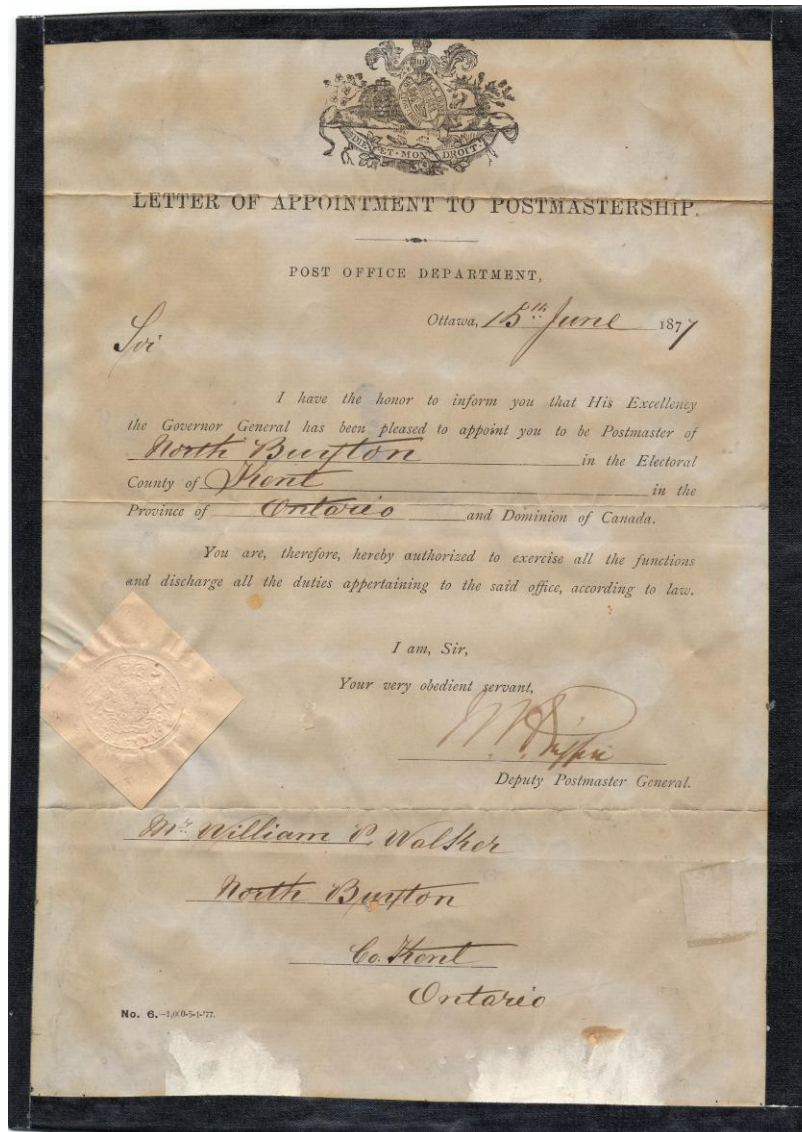 DIEU ET MON DROIT
LETTER OF APPOINTMENT TO POSTMASTERSHIP.
POST OFFICE DEPARTMENT,
Ottawa, 15th June 1877
Sir
I have the honor to inform you that His Excellency
the Governor General has been pleased to appoint you to be Postmaster of
North Buxton in the Electoral
County of Kent in the
Province of Ontario and Dominion of Canada.
You are, therefore, hereby authorized to exercise all the functions
and discharge all the duties appertaining to the said office, according to law.
I am, Sir,
Your very obedient servant,
Deputy Postmaster General.
Mr. William P. Walker
North Buxton
Co. Kent
Ontario
No. 6.—1,000-5-1-'77.